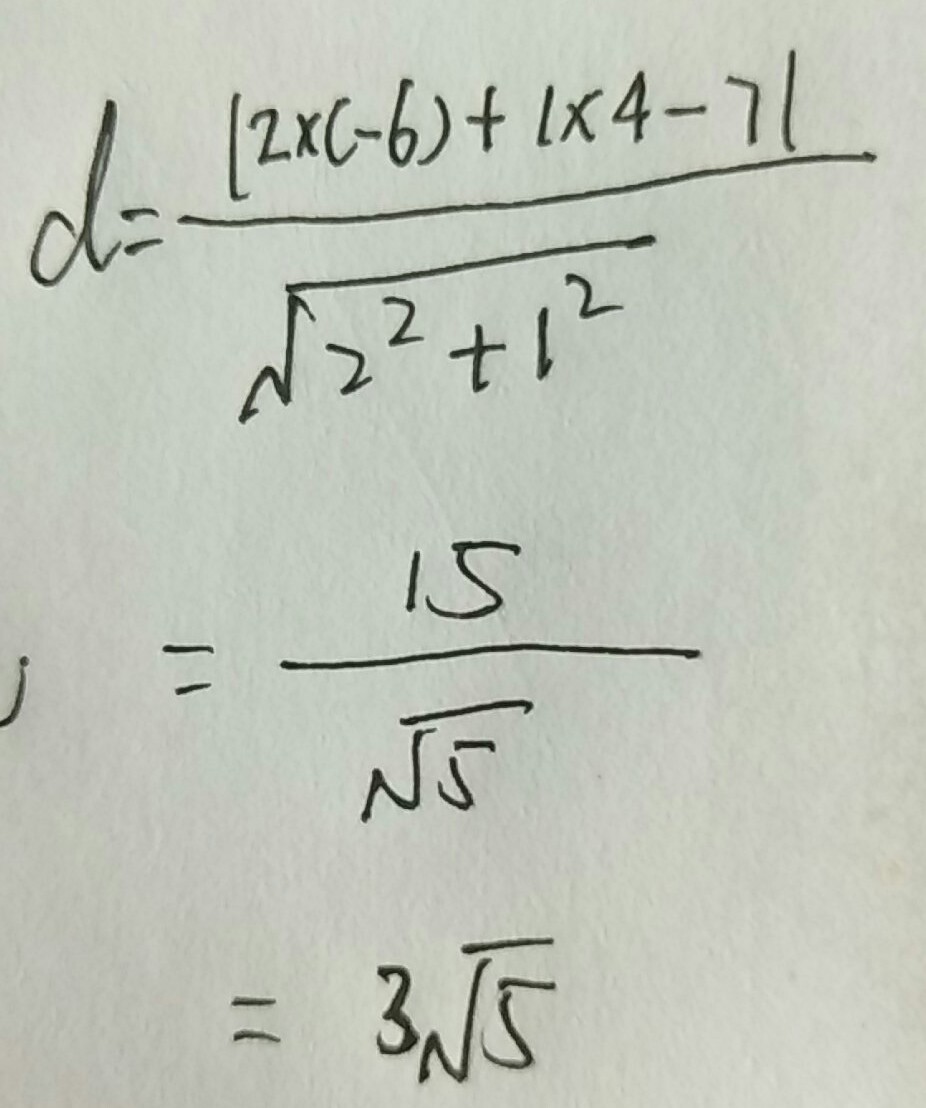 d = |2×(-6)+1×4-7| / √(2²+1²)
= 15 / √5
= 3√5